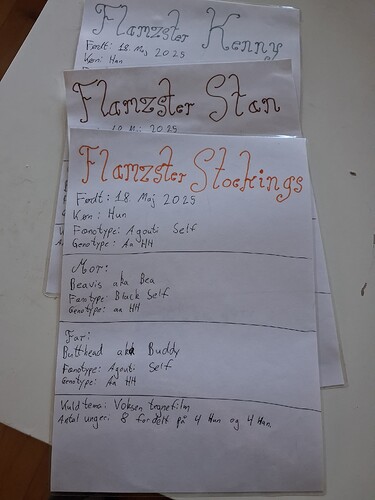 Flamzster Kenny
Født: 18. Maj 2025
Køn: Han
Flamzster Stan
2025
Flamzster Stockings
Født: 18. Maj 2025
Køn: Hun
Fænotype: Agouti Self
Genotype: Aa HH
Mor:
Beavis aka Bea
Fænotype: Black Self
Genotype: aa HH
Far:
Butthead aka Buddy
Fænotype: Agouti Self
Genotype: Aa HH
Kuldtema: Voksen tegnefilm
Antal unger: 8 fordelt på 4 Hun og 4 Han